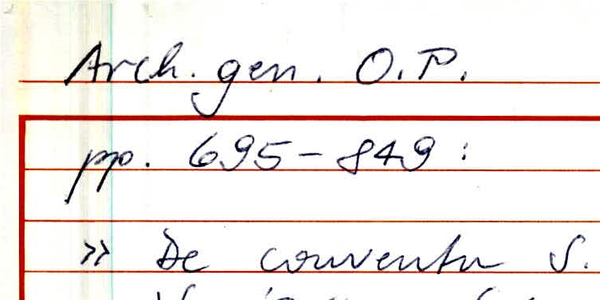 Arch. gen. O.P.
pp. 695-849:
» De conventu S.